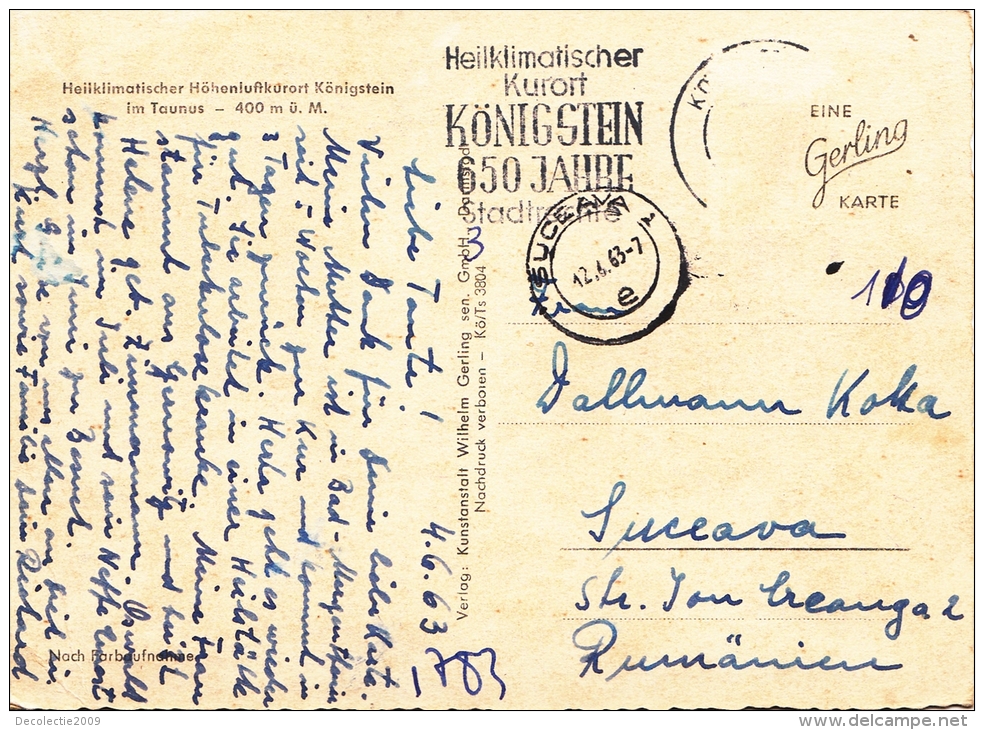 Heilklimatischer Höhenluftkurort Königstein
im Taunus – 400 m ü. M.
Heilklimatischer
Kurort
KÖNIGSTEIN
650 JAHRE
Stadtrechte
EINE
Gerling
KARTE
SUCEAVA
12.6.63-7
e
4.6.63
Liebe Tante!
Vielen Dank für Deine liebe Karte.
Meine Mutter ist in Bad-Mergentheim
seit 5 Wochen zur Kur und kommt in
3 Tagen zurück. Herta geht es wieder
gut. Sie arbeitet in einer Heilstätte
für Tuberkulosekranke. Meine Frau
stammt aus Czernowitz und heißt
Helene geb. Zimmermann. Oswald
kommt im Juli und sein Neffe Kurt
schon im Juni zu Besuch.
Herzl. Grüße von uns allen an Dich u.
Kurt sowie Familie Dein Richard
Nach Farbaufnahme
1783
Verlag: Kunstanstalt Wilhelm Gerling sen. GmbH, Darmstadt
Nachdruck verboten – Kö/Ts 3804
3
110
Dallmann Koka
Suceava
Str. Ion Creanga 2
Rumänien
Decolectie2009
www.delcampe.net